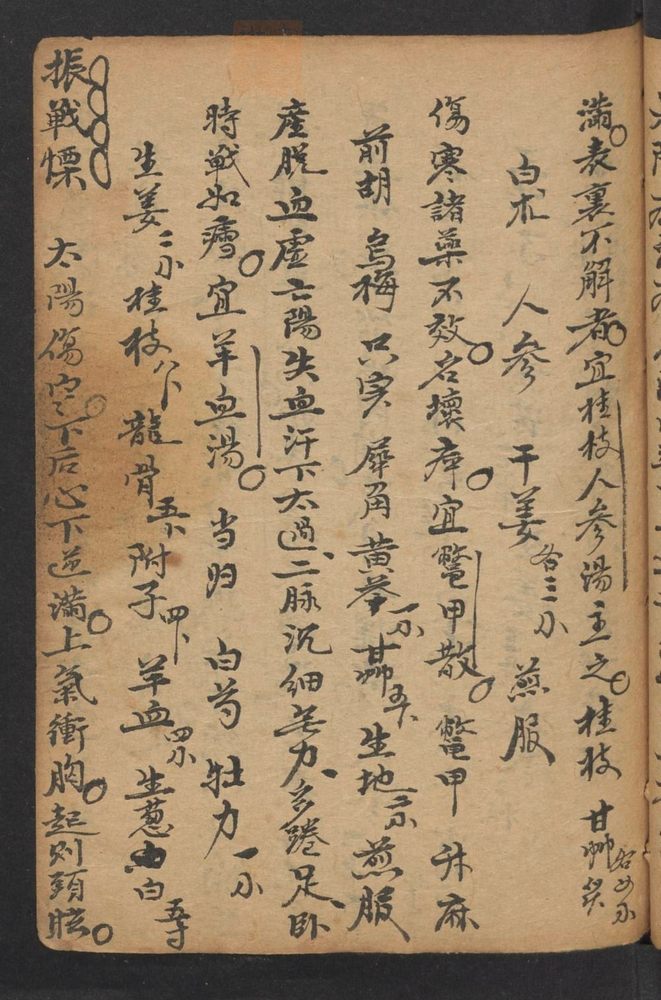 滿表裏不解者宜桂枝人參湯主之桂枝 甘艸炙各四小
白朮 人參 干姜各三小 煎服
傷寒諸藥不效名壞病宜鱉甲散 鱉甲 升麻
前胡 烏梅 只实 犀角 黃芩一小 甘艸五卜 生地二小 煎服
產脫血虛亡陽失血汗下太過二脉沉細無力多踡足臥
時戰如瘧宜羊血湯 当归 白芍 牡力一小
生姜二小 桂枝八卜 龍骨五卜 附子四卜 羊血四小 生葱白五寸
振戰慄 太陽傷寒下后心下逆滿上氣衝胸起则頭眩